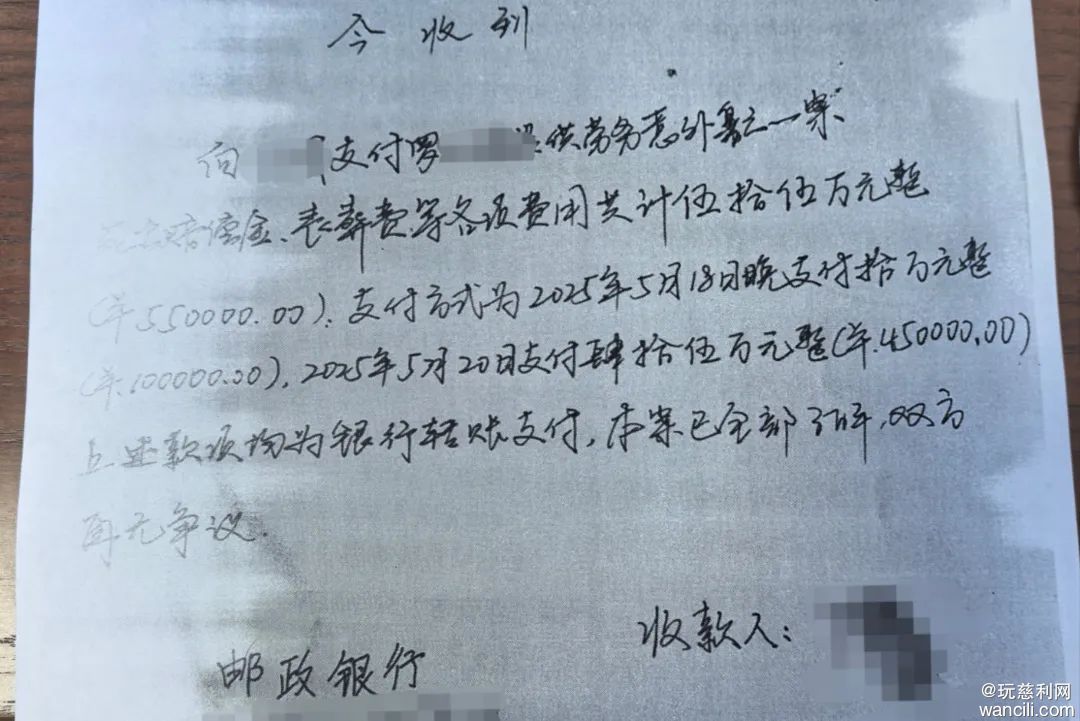 今收到
向 支付罗 供劳务意外身亡一案
死亡赔偿金、丧葬费等各项费用共计伍拾伍万元整
(¥550000.00). 支付方式为2025年5月18日晚支付拾万元整
(¥.100000.00), 2025年5月20日支付肆拾伍万元整(¥.450000.00)
上述款项均为银行转账支付, 本案已全部了结, 双方
再无争议.
收款人:
邮政银行
@玩慈利网
wancili.com